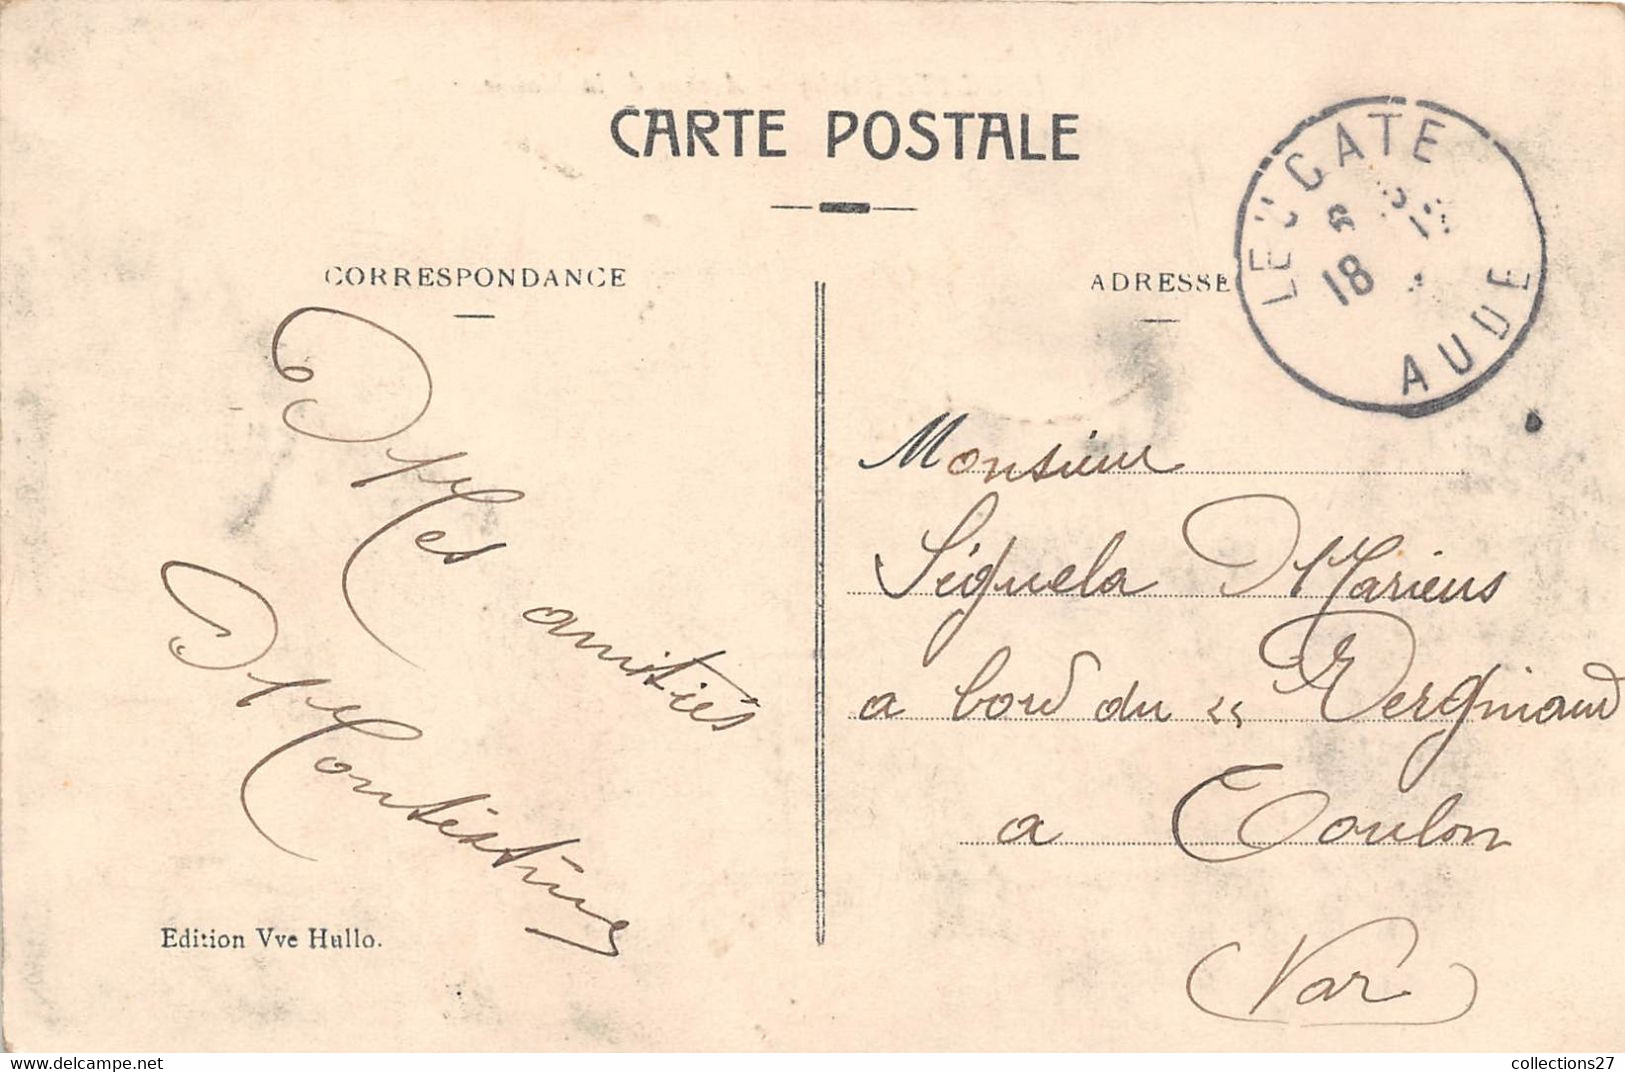 CARTE POSTALE
CORRESPONDANCE
ADRESSE
LEUCATE
18
AUDE
Mes amitiés
Monsieur
Séguela Marius
a bord du « Vergniaud
a Toulon
(Var)
Edition Vve Hullo.
collections27